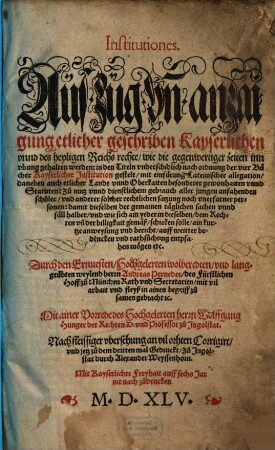 Institutiones.
Auszug vñ anzai
gung etlicher geschriben Kayserlichen
vnnd des heyligen Reichs rechte / wie die gegenwertiger zeiten inn
übung gehalten werden: in den Titeln vnderschidlich nach ordnung der vier Bü
cher Kayserlicher Institution gestelt / mit einfürung Lateinischer allegation /
daneben auch etlicher Lande vnnd Oberkaiten besonderer gewonhaiten vnnd
Statuten: Zu nutz vnnd dienstlichem gebrauch aller jungen anfahenden
schüler / vnd anderer solcher rechtlichen satzung noch vnerfarner per
sonen: damit dieselben der gemainen täglichen sachen vnnd
fäll halber / vnd wie sich am yeder in dieselben / von Rech
ten vñ der billigkait gemäß / schicken solle / ain kur
tze anweysung vnd bericht / auff weitter be
dencken vnd rathschlagung empfa
hen mögen etc.
Durch den Ernuesten / Hochgelerten wolberedten / vnd lang
geübten weylend herrn Andreas Perneder / des Fürstlichen
Hoff zů München Rath vnd Secretarien / mit vil
arbait vnd fleyß in ainen begriff zů
samen gebracht etc.
Mit ainer Vorrede des Hochgelerten herrn Wolffgang
Hunger der Rechten D. vnd Professor zů Ingolstat.
Nach fleissiger übersehung an vil orthen Corrigirt /
vnd jetz zů dem dritten mal Gedruckt / zů Ingol
stat durch Alexander Weyssenhorn.
Mit Kayserlicher Freyhait auff sechs Jar
nit nach zůdrucken.
M. D. XLV.